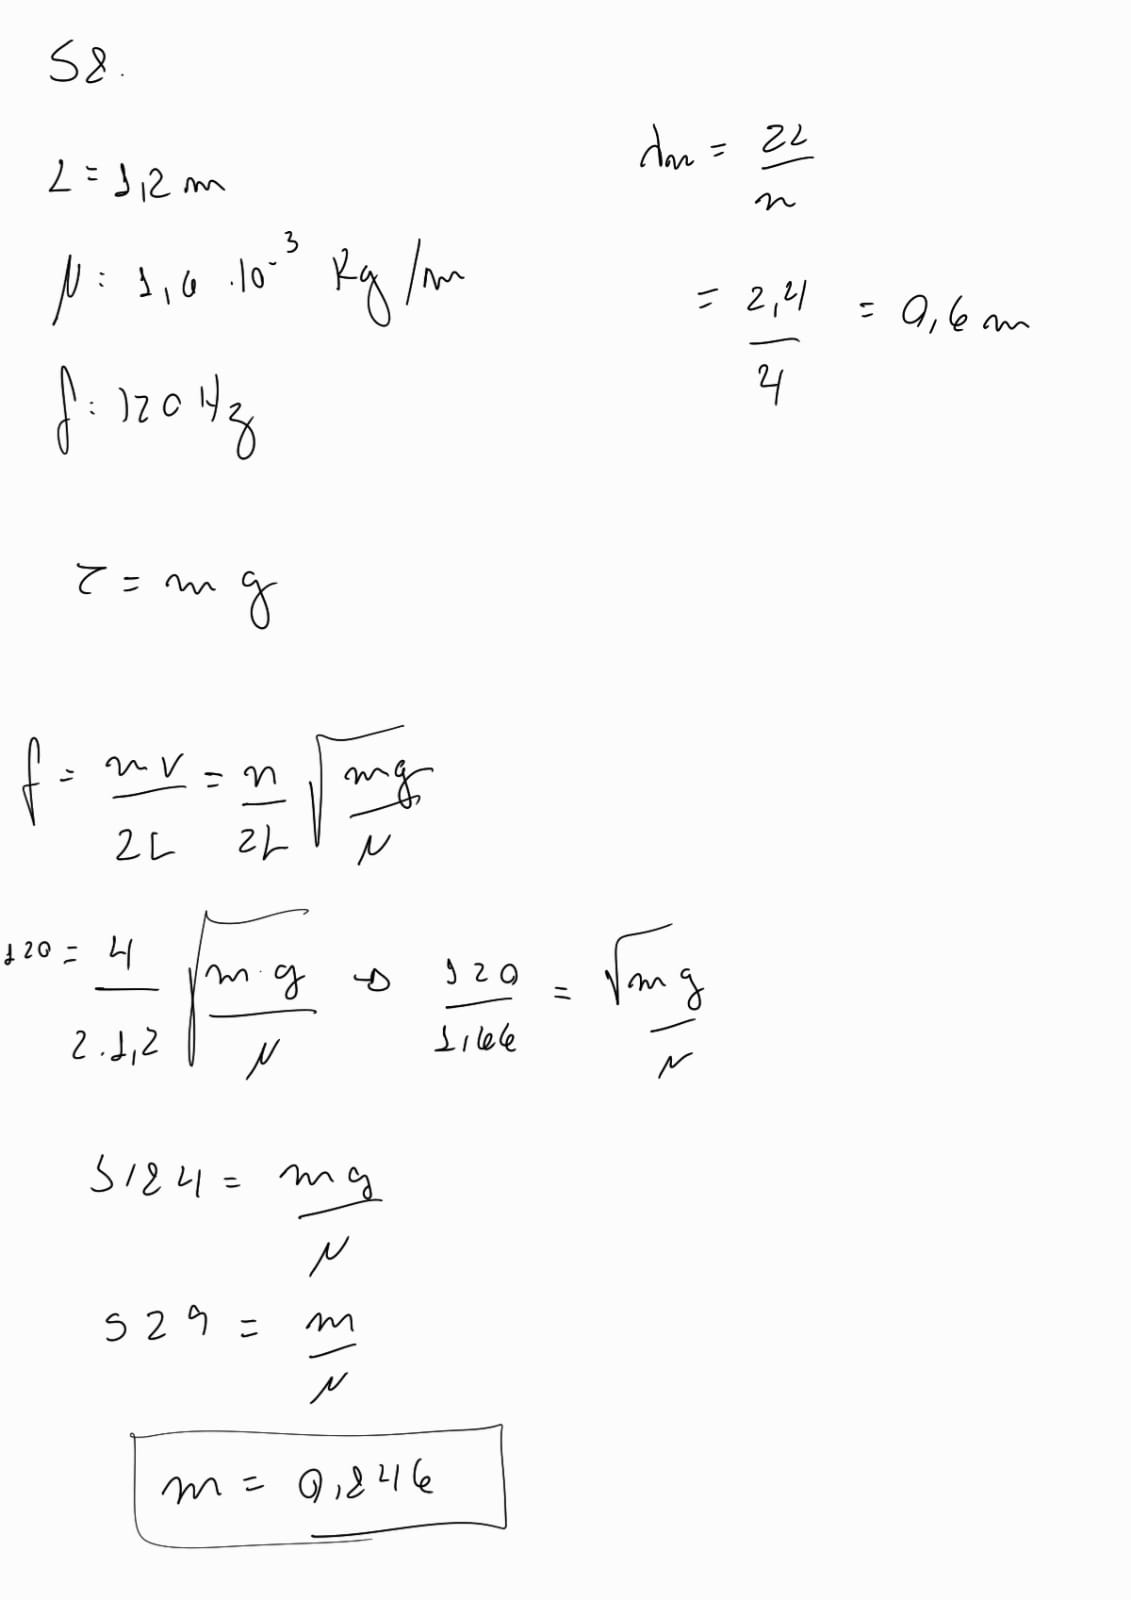 58.
L = 1,2 m
μ: 1,6 .10⁻³ Kg/m
f: 120 Hz
λn = 2L/n
= 2,4/4 = 0,6 m
τ = m g
f = nv/2L = n/2L √(mg/μ)
120 = 4/2.1,2 √(m.g/μ) → 120/1,66 = √(mg/μ)
5184 = mg/μ
529 = m/μ
m = 0,846